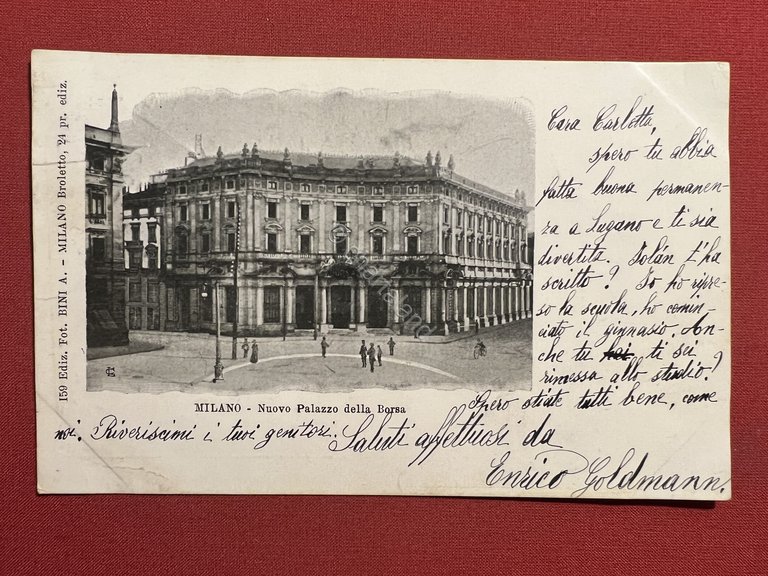 159 Ediz. Fot. BINI A. - MILANO Broletto, 24 pr. ediz.
MILANO - Nuovo Palazzo della Borsa
Cara Carletta,
spero tu abbia
fatta buona permanen-
za a Lugano e ti sia
divertita. Iolan t'ha
scritto? Io ho ripre-
so la scuola, ho comin-
ciato il ginnasio. An-
che tu hai ti sei
rimessa allo studio?
Spero stiate tutti bene, come
noi. Riveriscimi i tuoi genitori. Saluti affettuosi da
Enrico Goldmann.